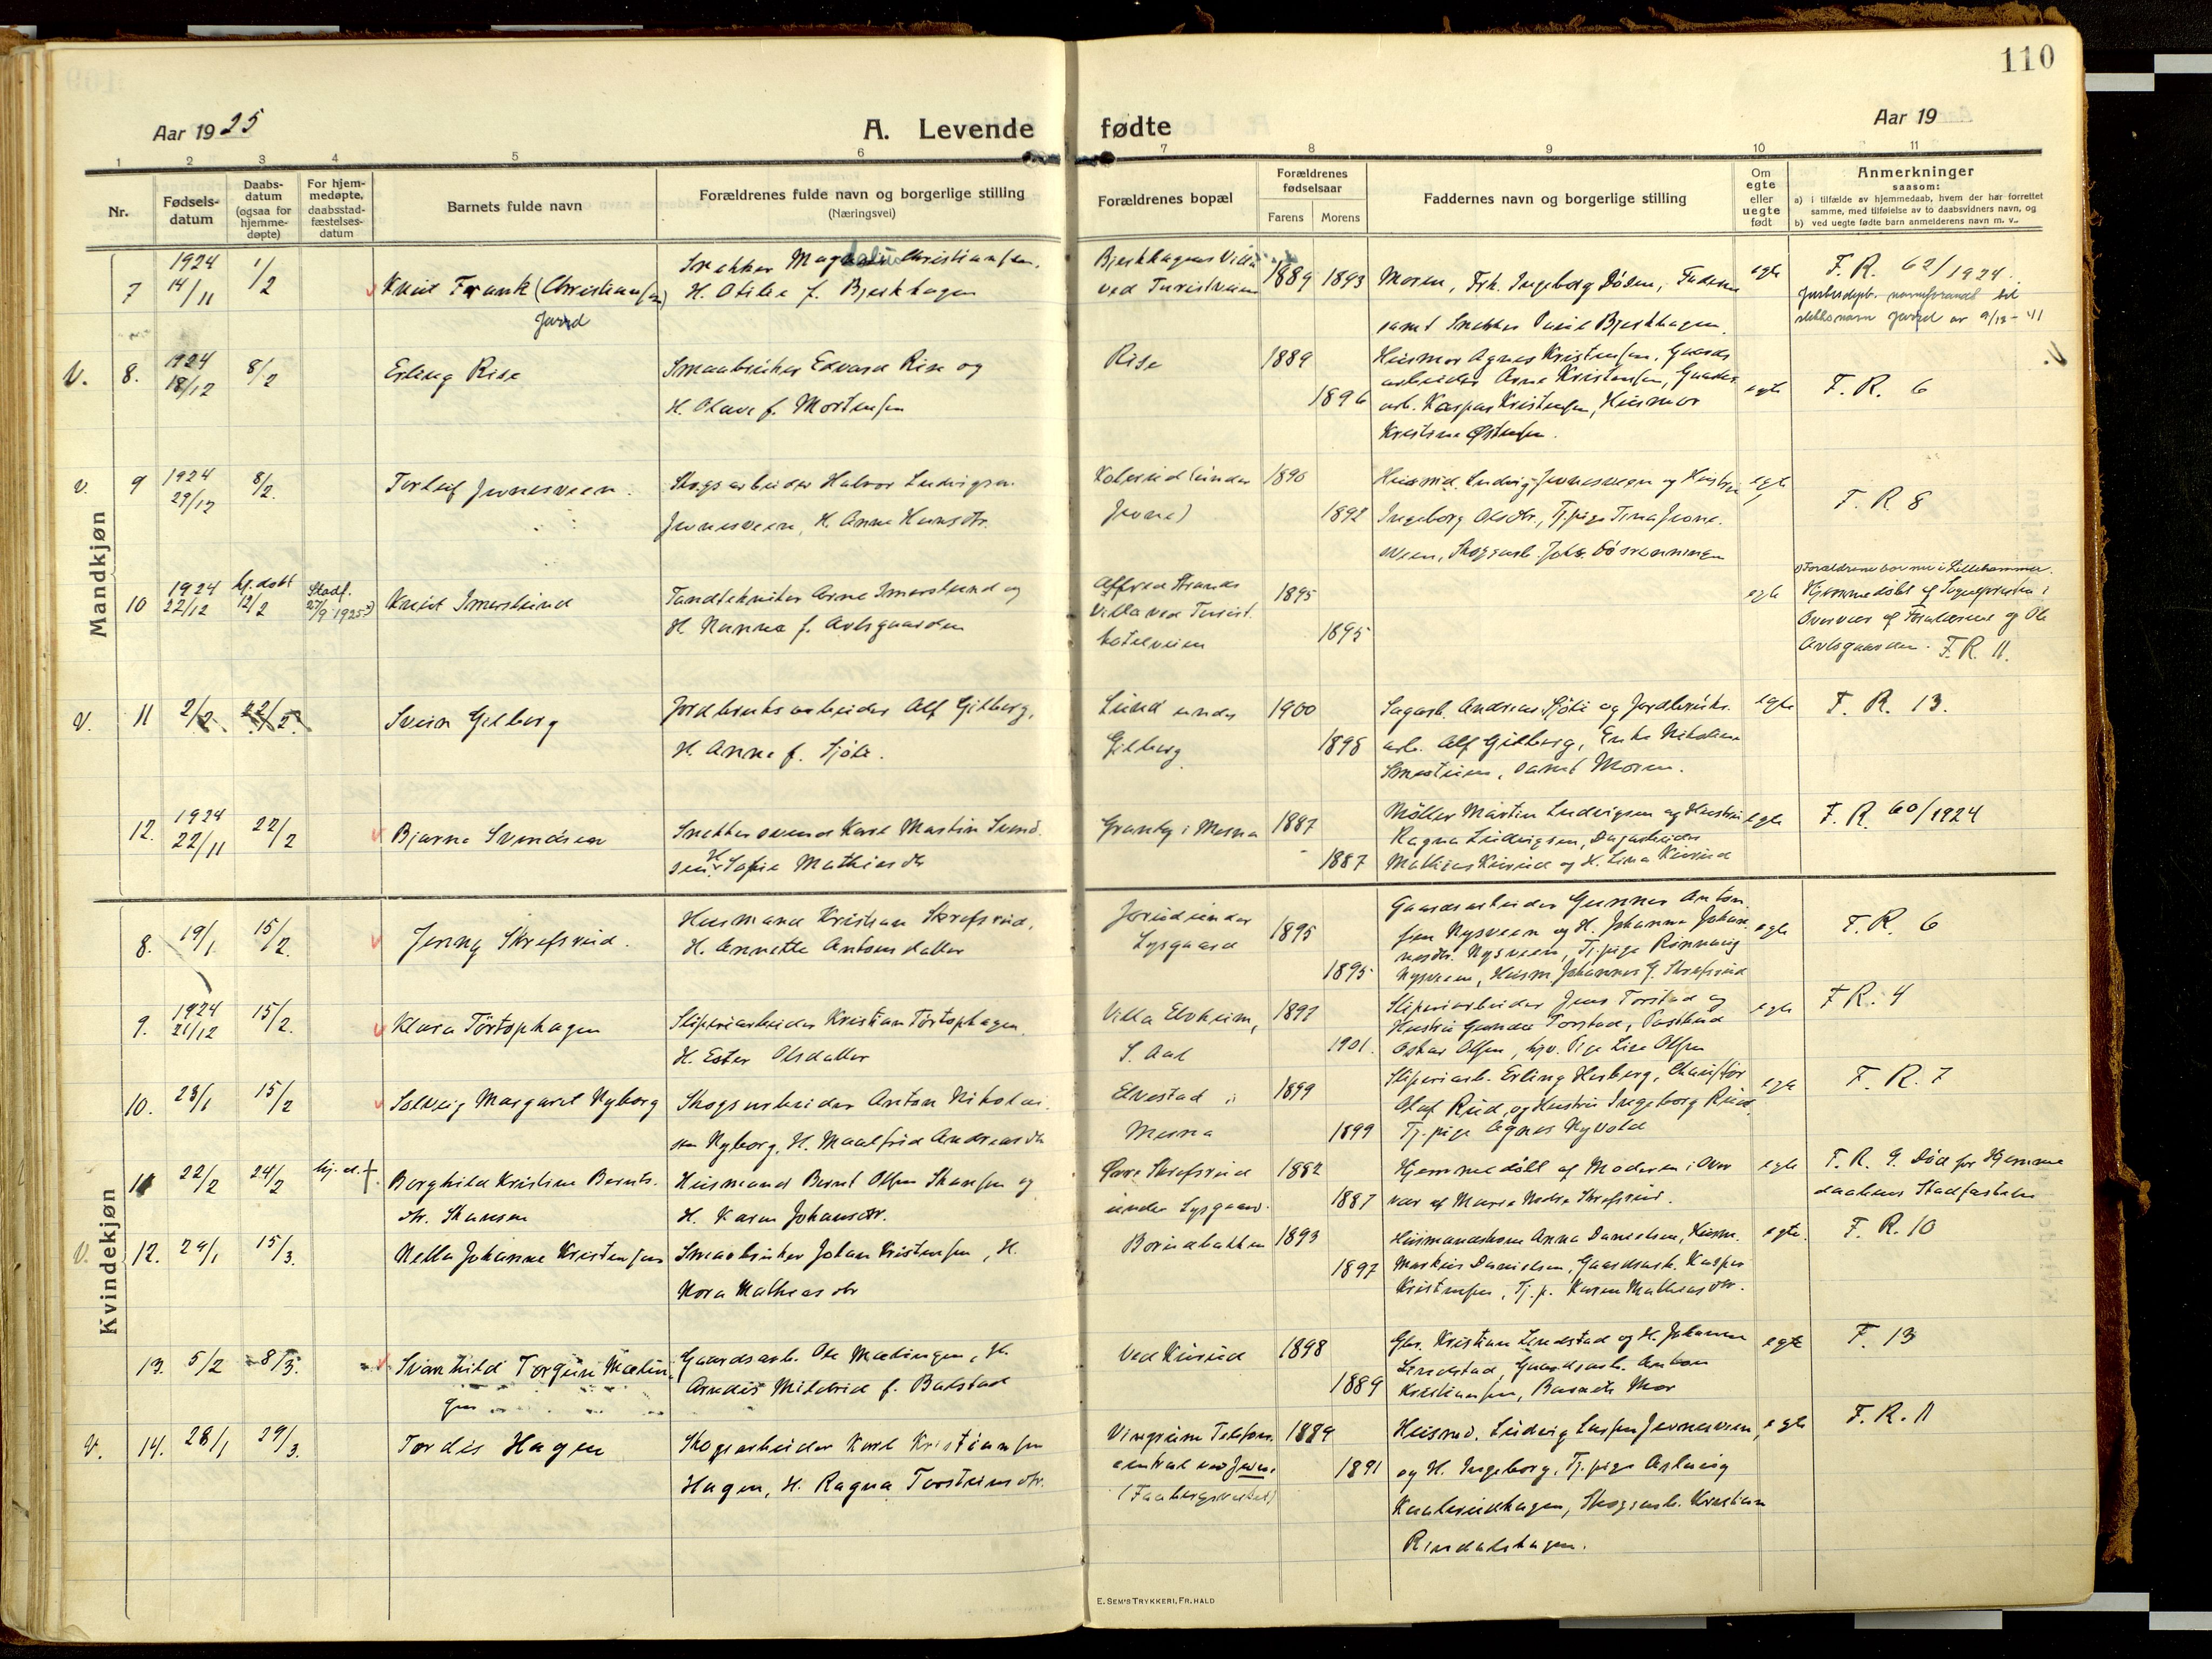 110
Aar 1925
A. Levende fødte
Aar 19
1 2 3 4 5 6 7 8 9 10 11
Nr.
Fødsels-
datum
Daabs-
datum
(ogsaa for
hjemme-
døpte)
For hjem-
medøpte,
daabsstad-
fæstelses-
datum
Barnets fulde navn
Forældrenes fulde navn og borgerlige stilling
(Næringsvei)
Forældrenes bopæl
Forældrenes
fødselsaar
Farens Morens
Faddernes navn og borgerlige stilling
Om
egte
eller
uegte
født
Anmerkninger
saasom:
a) i tilfælde av hjemmedaab, hvem der har forrettet
samme, med tilføielse av to daabsvidners navn, og
b) ved uegte fødte barn anmelderens navn m. v.
Mandkjøn
7 1924 14/11 1/2
Knut Frank (Christiansen)
Snekker Christiansen,
H. Otilie f. Bjerkhagen
Bjerkhagens Villa
ved Turistveien
1889 1893
Moren, Frk. Ingeborg Døsen, Faderen
samt Snekker Bjerkhagen.
egte
F. R. 62/1924.
V. 8. 1924 18/12 8/2
Erling Rise
Smaabruker Edvard Rise og
H. Olave f. Mortensen
Rise
1889
1896
Husmor Agnes Kristensen, Gaards
arbeider Arne Kristensen, Gaards
arb. Kaspar Kristensen, Husmor
Kristine Østensen.
egte
F. R. 6
V. 9 1924 29/12 8/2.
Torleif Jevnesveen.
Skogsarbeider Halvor Ludvigsen
Jevnesveen, H. Anne Hansdtr.
Kolerud (under
Jevne)
1890
1892
Husmd. Ludvig Jevnesveen og Hustru
Ingeborg Olsdtr., Tj.pige Tina Jevne-
sveen, Skogsarb.
egte
F. R. 8
10 1924 22/12 hj.døbt 12/2 Stadf. 27/9 1925
Knut Imerslund
Tandtekniker Arne Imerslund og
H. Nanna f. Avlsgaarden
Alfred Strands
Villa ved Turist
hotelveien
1895
1895
egte
Forældrene bor nu i Lillehammer.
Hjemmedøbt af Sognepresten i
Overvær af Forældrene og Ole
Avlsgaarden. F. R. 11.
V. 11 2/2 22/2
Svein Gilberg
Jordbruksarbeider Alf Gilberg,
H. Anne f. Sjøli.
Lund under
Gilberg
1900
1898
Sagarb. Andreas Sjøli og Jordbruks-
arb. Alf Gilberg, Enke Nikoline
Smestuen, samt Moren.
egte
F. R. 13.
12. 1924 22/11 22/2
Bjarne Svendsen
Snekkersvend Karl Martin Svend-
sen. H. Sofie Mathiasdtr
Granly i Mesna
1887
1887
Møller Martin Ludvigsen og Hustru
Ragna Ludvigsen, Dagarbeider
Mathias Kurud og H. Lina Kurud
egte
F. R. 60/1924
Kvindekjøn
8. 19/1. 15/2.
Jenny Skrefsrud.
Husmand Kristian Skrefsrud,
H. Annette Antonsdatter
Jorud under
Lysgaard
1895
1895
Gaardsarbeider Gunner Anton-
sen Nysveen og H. Johanne Johan-
nesdtr. Nysveen, Tj.pige Rønnaug
Nysveen, Husm. Johannes G. Skrefsrud
egte
F. R. 6
9. 1924 21/12 15/2.
Klara Törtophagen
Sliperiarbeider Kristian Törtophagen,
H. Ester Olsdatter
Villa Elvheim,
S. Aal
1897
1901.
Sliperiarbeider Jens Torstad og
Hustru Gunda Torstad, Postbud
Oskar Olsen, hjv. Pige Lise Olsen
egte
F R. 4
10. 23/1 15/2
Solveig Margaret Nyborg
Skogsarbeider Anton Nikolai-
sen Nyborg, H. Maalfrid Andreasdtr
Elvestad i
Mesna
1899
1899
Sliperiarb. Erling Hesberg, Chauffør
Olaf Rud, og Hustru Ingeborg Rud,
Tj.pige Agnes Nyvold
egte
F. R. 7
11 22/2 24/2 hj. d. †
Borghild Kristine Bernts-
dtr. Skansen
Husmand Bernt Olsen Skansen og
H. Karen Johansdtr.
Øvre Skrefsrud
under Lysgaard.
1882
1887
Hjemmedøbt af Moderen i Over-
vær af Skrefsrud.
egte
F. R. 9. Død før Hjemme
daabens Stadfæstelse
V. 12. 29/1 15/3.
Nella Johanne Kristensen
Smaabruker Johan Kristensen, H.
Nora Mathiasdtr
Borudbakken
1893
1897
Husmandskone Anna Danielsen, Husm.
Markus Danielsen, Gaardsarb. Kaspar
Kristensen, Tj. p. Karen Mathiasdtr.
egte.
F. R. 10
13. 5/2 8/3.
Svanhild Torgun Mælin-
gen
Gaardsarb. Ole Mælingen, H.
Arndis Mildrid f. Bakstad
Ved Kurud
1898
1889
Gbr. Kristian Lindstad og H. Johanne
Lindstad, Gaardsarb. Anton
Kristiansen, Barnets Mor
egte
F. 13
V. 14. 28/1 29/3.
Tordis Hagen
Skogsarbeider Karl Kristiansen
Hagen, H. Ragna Torsteinsdtr.
Vingrum Telefon-
central ved Jevne
(Faabergsbakken)
1889
1891
Husmd. Ludvig Larsen Jevnesveen,
og H. Ingeborg, Tj.pige Aslaug
Kaalerudhagen, Skogsarb. Kristian
Rindalshagen.
egte
F. R. 11
E. SEM'S TRYKKERI, FR.HALD